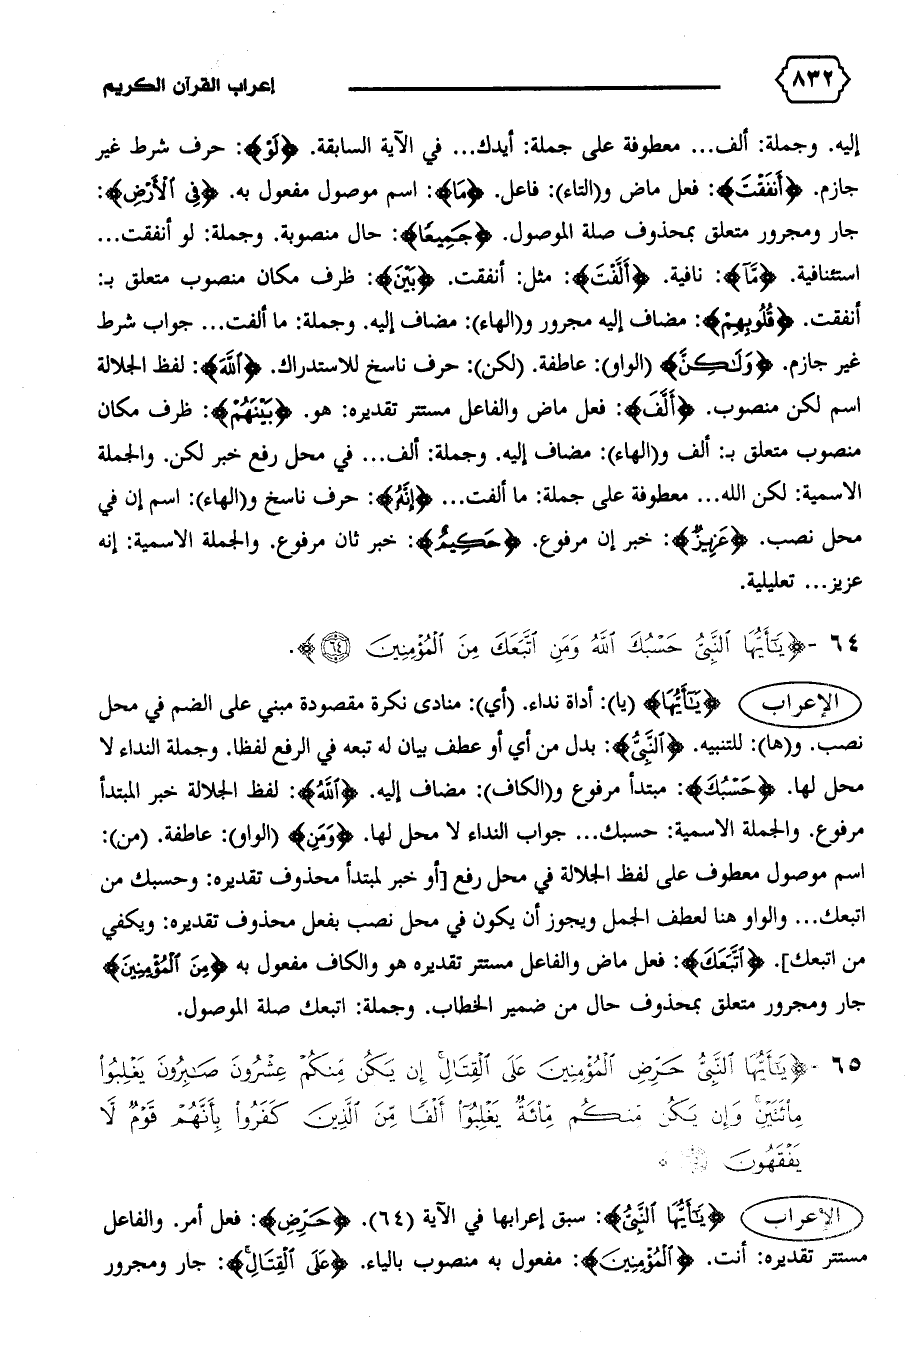 ٨٣٢ إعراب القرآن الكريم
إليه. وجملة: ألف... معطوفة على جملة: أيدك... في الآية السابقة. ﴿لَوْ﴾: حرف شرط غير
جازم. ﴿أَنفَقْتَ﴾: فعل ماض و(التاء): فاعل. ﴿مَا﴾: اسم موصول مفعول به. ﴿فِي ٱلْأَرْضِ﴾:
جار ومجرور متعلق بمحذوف صلة الموصول. ﴿جَمِيعًا﴾: حال منصوبة. وجملة: لو أنفقت...
استئنافية. ﴿مَّآ﴾: نافية. ﴿أَلَّفْتَ﴾: مثل: أنفقت. ﴿بَيْنَ﴾: ظرف مكان منصوب متعلق بـ:
أنفقت. ﴿قُلُوبِهِمْ﴾: مضاف إليه مجرور و(الهاء): مضاف إليه. وجملة: ما ألفت... جواب شرط
غير جازم. ﴿وَلَٰكِنَّ﴾ (الواو): عاطفة. (لكن): حرف ناسخ للاستدراك. ﴿ٱللَّهَ﴾: لفظ الجلالة
اسم لكن منصوب. ﴿أَلَّفَ﴾: فعل ماض والفاعل مستتر تقديره: هو. ﴿بَيْنَهُمْ﴾: ظرف مكان
منصوب متعلق بـ: ألف و(الهاء): مضاف إليه. وجملة: ألف... في محل رفع خبر لكن. والجملة
الاسمية: لكن الله... معطوفة على جملة: ما ألفت... ﴿إِنَّهُ﴾: حرف ناسخ و(الهاء): اسم إن في
محل نصب. ﴿عَزِيزٌ﴾: خبر إن مرفوع. ﴿حَكِيمٌ﴾: خبر ثان مرفوع. والجملة الاسمية: إنه
عزيز... تعليلية.
٦٤ - ﴿يَٰٓأَيُّهَا ٱلنَّبِيُّ حَسْبُكَ ٱللَّهُ وَمَنِ ٱتَّبَعَكَ مِنَ ٱلْمُؤْمِنِينَ ٦٤﴾.
الإعراب ﴿يَٰٓأَيُّهَا﴾ (يا): أداة نداء. (أي): منادى نكرة مقصودة مبني على الضم في محل
نصب. و(ها): للتنبيه. ﴿ٱلنَّبِيُّ﴾: بدل من أي أو عطف بيان له تبعه في الرفع لفظا. وجملة النداء لا
محل لها. ﴿حَسْبُكَ﴾: مبتدأ مرفوع و(الكاف): مضاف إليه. ﴿ٱللَّهُ﴾: لفظ الجلالة خبر المبتدأ
مرفوع. والجملة الاسمية: حسبك... جواب النداء لا محل لها. ﴿وَمَنِ﴾ (الواو): عاطفة. (من):
اسم موصول معطوف على لفظ الجلالة في محل رفع [أو خبر لمبتدأ محذوف تقديره: وحسبك من
اتبعك... والواو هنا لعطف الجمل ويجوز أن يكون في محل نصب بفعل محذوف تقديره: ويكفي
من اتبعك]. ﴿ٱتَّبَعَكَ﴾: فعل ماض والفاعل مستتر تقديره هو والكاف مفعول به ﴿مِنَ ٱلْمُؤْمِنِينَ﴾
جار ومجرور متعلق بمحذوف حال من ضمير الخطاب. وجملة: اتبعك صلة الموصول.
٦٥ - ﴿يَٰٓأَيُّهَا ٱلنَّبِيُّ حَرِّضِ ٱلْمُؤْمِنِينَ عَلَى ٱلْقِتَالِ ۚ إِن يَكُن مِّنكُمْ عِشْرُونَ صَٰبِرُونَ يَغْلِبُوا۟
مِا۟ئَتَيْنِ ۚ وَإِن يَكُن مِّنكُم مِّا۟ئَةٌ يَغْلِبُوٓا۟ أَلْفًا مِّنَ ٱلَّذِينَ كَفَرُوا۟ بِأَنَّهُمْ قَوْمٌ لَّا
يَفْقَهُونَ
الإعراب ﴿يَٰٓأَيُّهَا ٱلنَّبِيُّ﴾: سبق إعرابها في الآية (٦٤). ﴿حَرِّضِ﴾: فعل أمر. والفاعل
مستتر تقديره: أنت. ﴿ٱلْمُؤْمِنِينَ﴾: مفعول به منصوب بالياء. ﴿عَلَى ٱلْقِتَالِ ۚ﴾: جار ومجرور